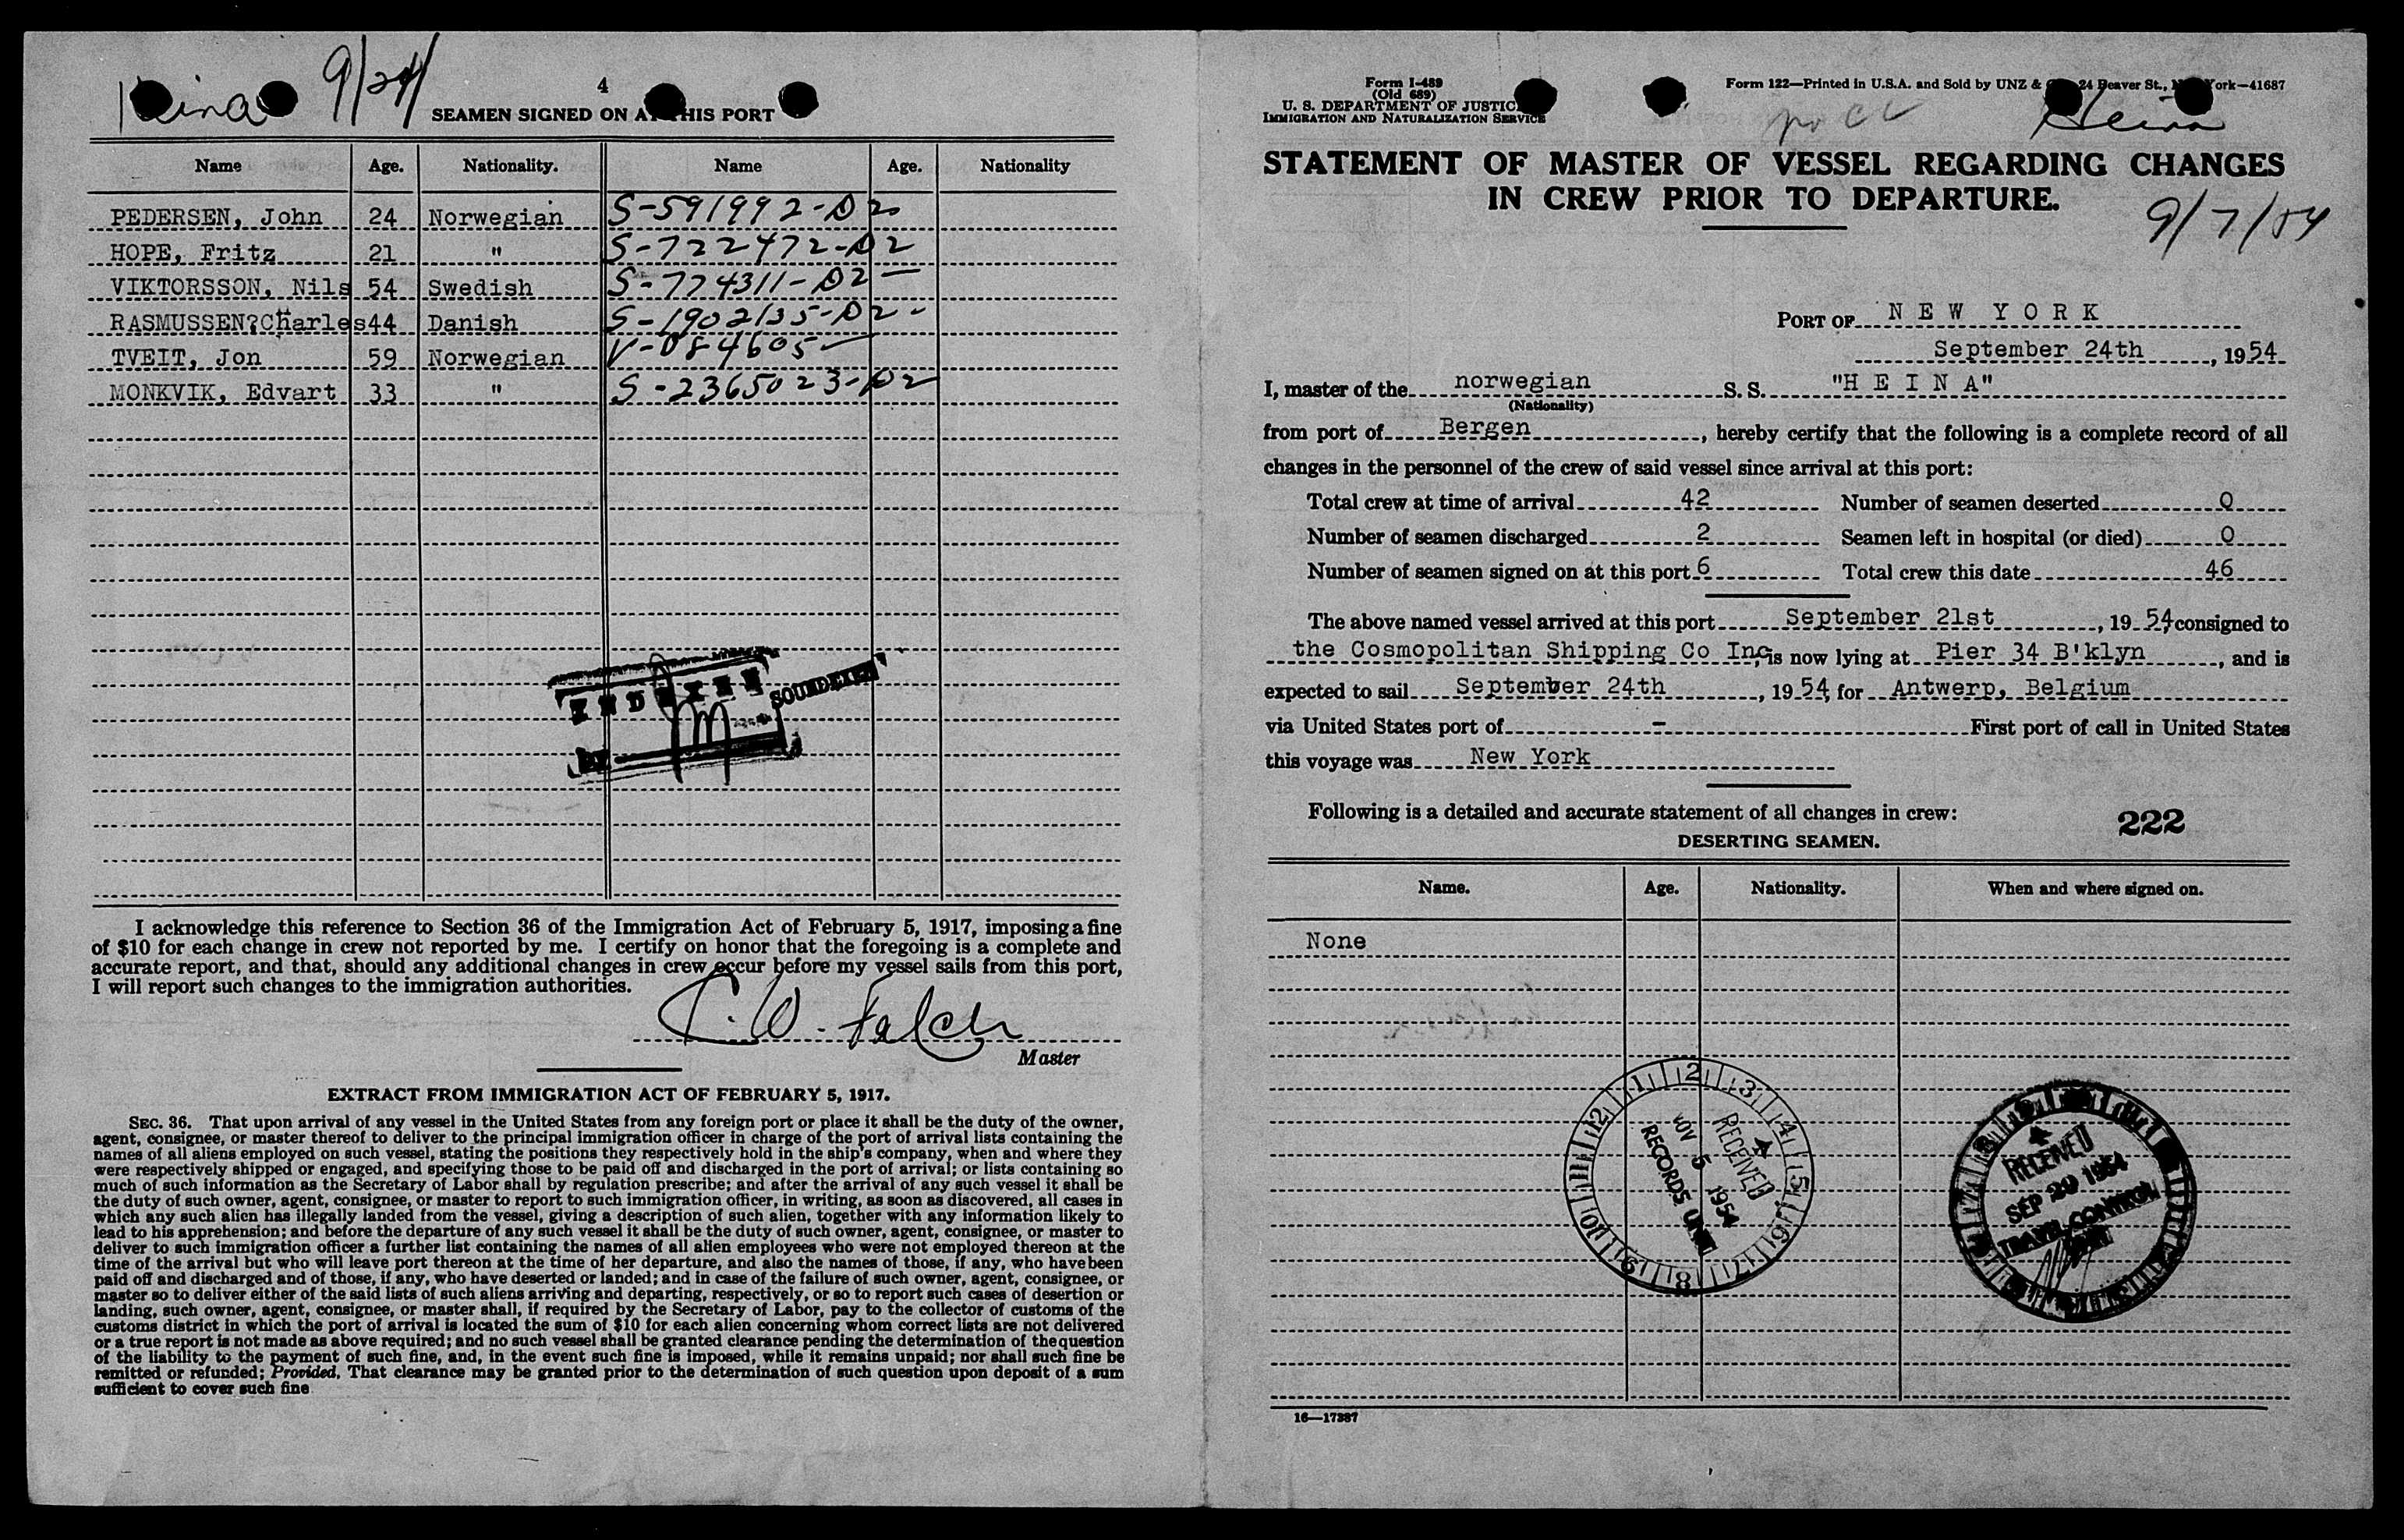 Heina 9/24
4
SEAMEN SIGNED ON AT THIS PORT
Name Age. Nationality. Name Age. Nationality
PEDERSEN, John 24 Norwegian S-591992-D2
HOPE, Fritz 21 " S-722472-D2
VIKTORSSON, Nils 54 Swedish S-774311-D2 —
RASMUSSEN, Charles 44 Danish S-1902135-D2 -
TVEIT, Jon 59 Norwegian V-084605 —
MONKVIK, Edvart 33 " S-2365023-D2
INDEXED SOUNDEXED
BY
I acknowledge this reference to Section 36 of the Immigration Act of February 5, 1917, imposing a fine
of $10 for each change in crew not reported by me. I certify on honor that the foregoing is a complete and
accurate report, and that, should any additional changes in crew occur before my vessel sails from this port,
I will report such changes to the immigration authorities.
C. W. Falch
Master
EXTRACT FROM IMMIGRATION ACT OF FEBRUARY 5, 1917.
SEC. 36. That upon arrival of any vessel in the United States from any foreign port or place it shall be the duty of the owner,
agent, consignee, or master thereof to deliver to the principal immigration officer in charge of the port of arrival lists containing the
names of all aliens employed on such vessel, stating the positions they respectively hold in the ship's company, when and where they
were respectively shipped or engaged, and specifying those to be paid off and discharged in the port of arrival; or lists containing so
much of such information as the Secretary of Labor shall by regulation prescribe; and after the arrival of any such vessel it shall be
the duty of such owner, agent, consignee, or master to report to such immigration officer, in writing, as soon as discovered, all cases in
which any such alien has illegally landed from the vessel, giving a description of such alien, together with any information likely to
lead to his apprehension; and before the departure of any such vessel it shall be the duty of such owner, agent, consignee, or master to
deliver to such immigration officer a further list containing the names of all alien employees who were not employed thereon at the
time of the arrival but who will leave port thereon at the time of her departure, and also the names of those, if any, who have been
paid off and discharged and of those, if any, who have deserted or landed; and in case of the failure of such owner, agent, consignee, or
master so to deliver either of the said lists of such aliens arriving and departing, respectively, or so to report such cases of desertion or
landing, such owner, agent, consignee, or master shall, if required by the Secretary of Labor, pay to the collector of customs of the
customs district in which the port of arrival is located the sum of $10 for each alien concerning whom correct lists are not delivered
or a true report is not made as above required; and no such vessel shall be granted clearance pending the determination of the question
of the liability to the payment of such fine, and, in the event such fine is imposed, while it remains unpaid; nor shall such fine be
remitted or refunded; Provided, That clearance may be granted prior to the determination of such question upon deposit of a sum
sufficient to cover such fine
Form I-489
(Old 689)
U. S. DEPARTMENT OF JUSTICE
IMMIGRATION AND NATURALIZATION SERVICE
Form 122—Printed in U.S.A. and Sold by UNZ & 24 Beaver St., New York—41687
no cc Heina
STATEMENT OF MASTER OF VESSEL REGARDING CHANGES
IN CREW PRIOR TO DEPARTURE.
9/7/54
PORT OF NEW YORK
September 24th, 1954
I, master of the norwegian S. S. "H E I N A"
(Nationality)
from port of Bergen, hereby certify that the following is a complete record of all
changes in the personnel of the crew of said vessel since arrival at this port:
Total crew at time of arrival 42 Number of seamen deserted 0
Number of seamen discharged 2 Seamen left in hospital (or died) 0
Number of seamen signed on at this port 6 Total crew this date 46
The above named vessel arrived at this port September 21st, 19 54 consigned to
the Cosmopolitan Shipping Co Inc, is now lying at Pier 34 B'klyn, and is
expected to sail September 24th, 1954, for Antwerp, Belgium
via United States port of - First port of call in United States
this voyage was New York
Following is a detailed and accurate statement of all changes in crew:
222
DESERTING SEAMEN.
Name. Age. Nationality. When and where signed on.
None
1 2 3 4 5 6 7 8 9 10 11 12
RECEIVED
NOV 5 1954
RECORDS UNIT
RECEIVED
SEP 29 1954
TRAVEL CONTROL
16—17387